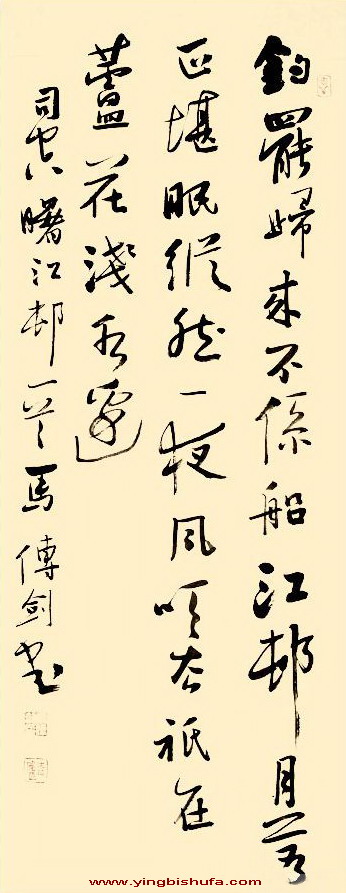 釣罷歸来不係船江邨月落
正堪眠縱然一夜風吹去祇在
蘆花淺水邊
司空曙江邨 馬傅剑书
www.yingbishufa.com